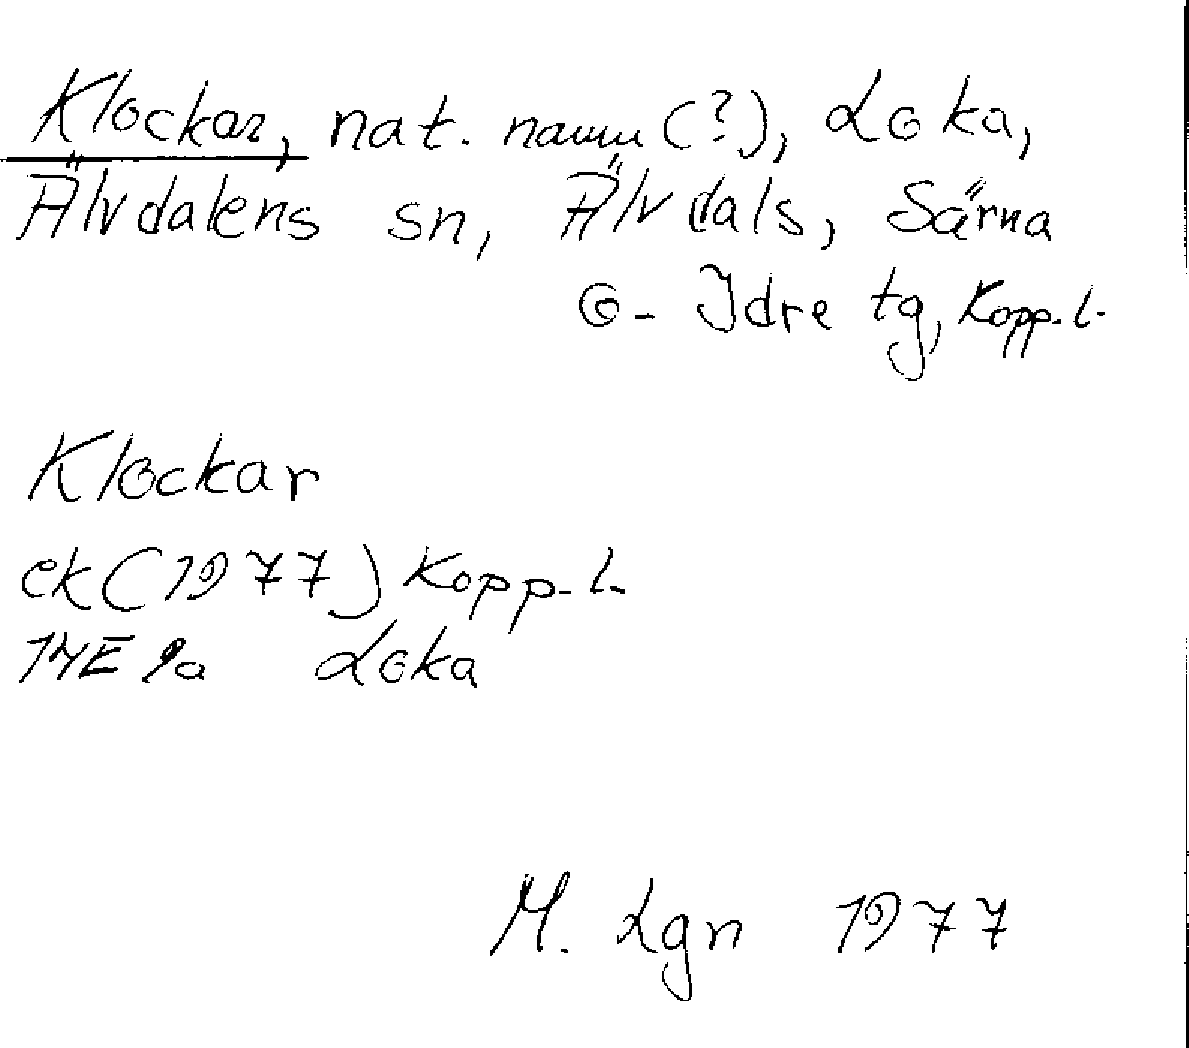 Klockar, nat. namn (?), Loka,
Älvdalens sn, Älvdals, Särna
o- Idre tg, Kopp. l.
Klockar
ek (1977) Kopp. l.
14E 9a Loka
M. Lgn 1977